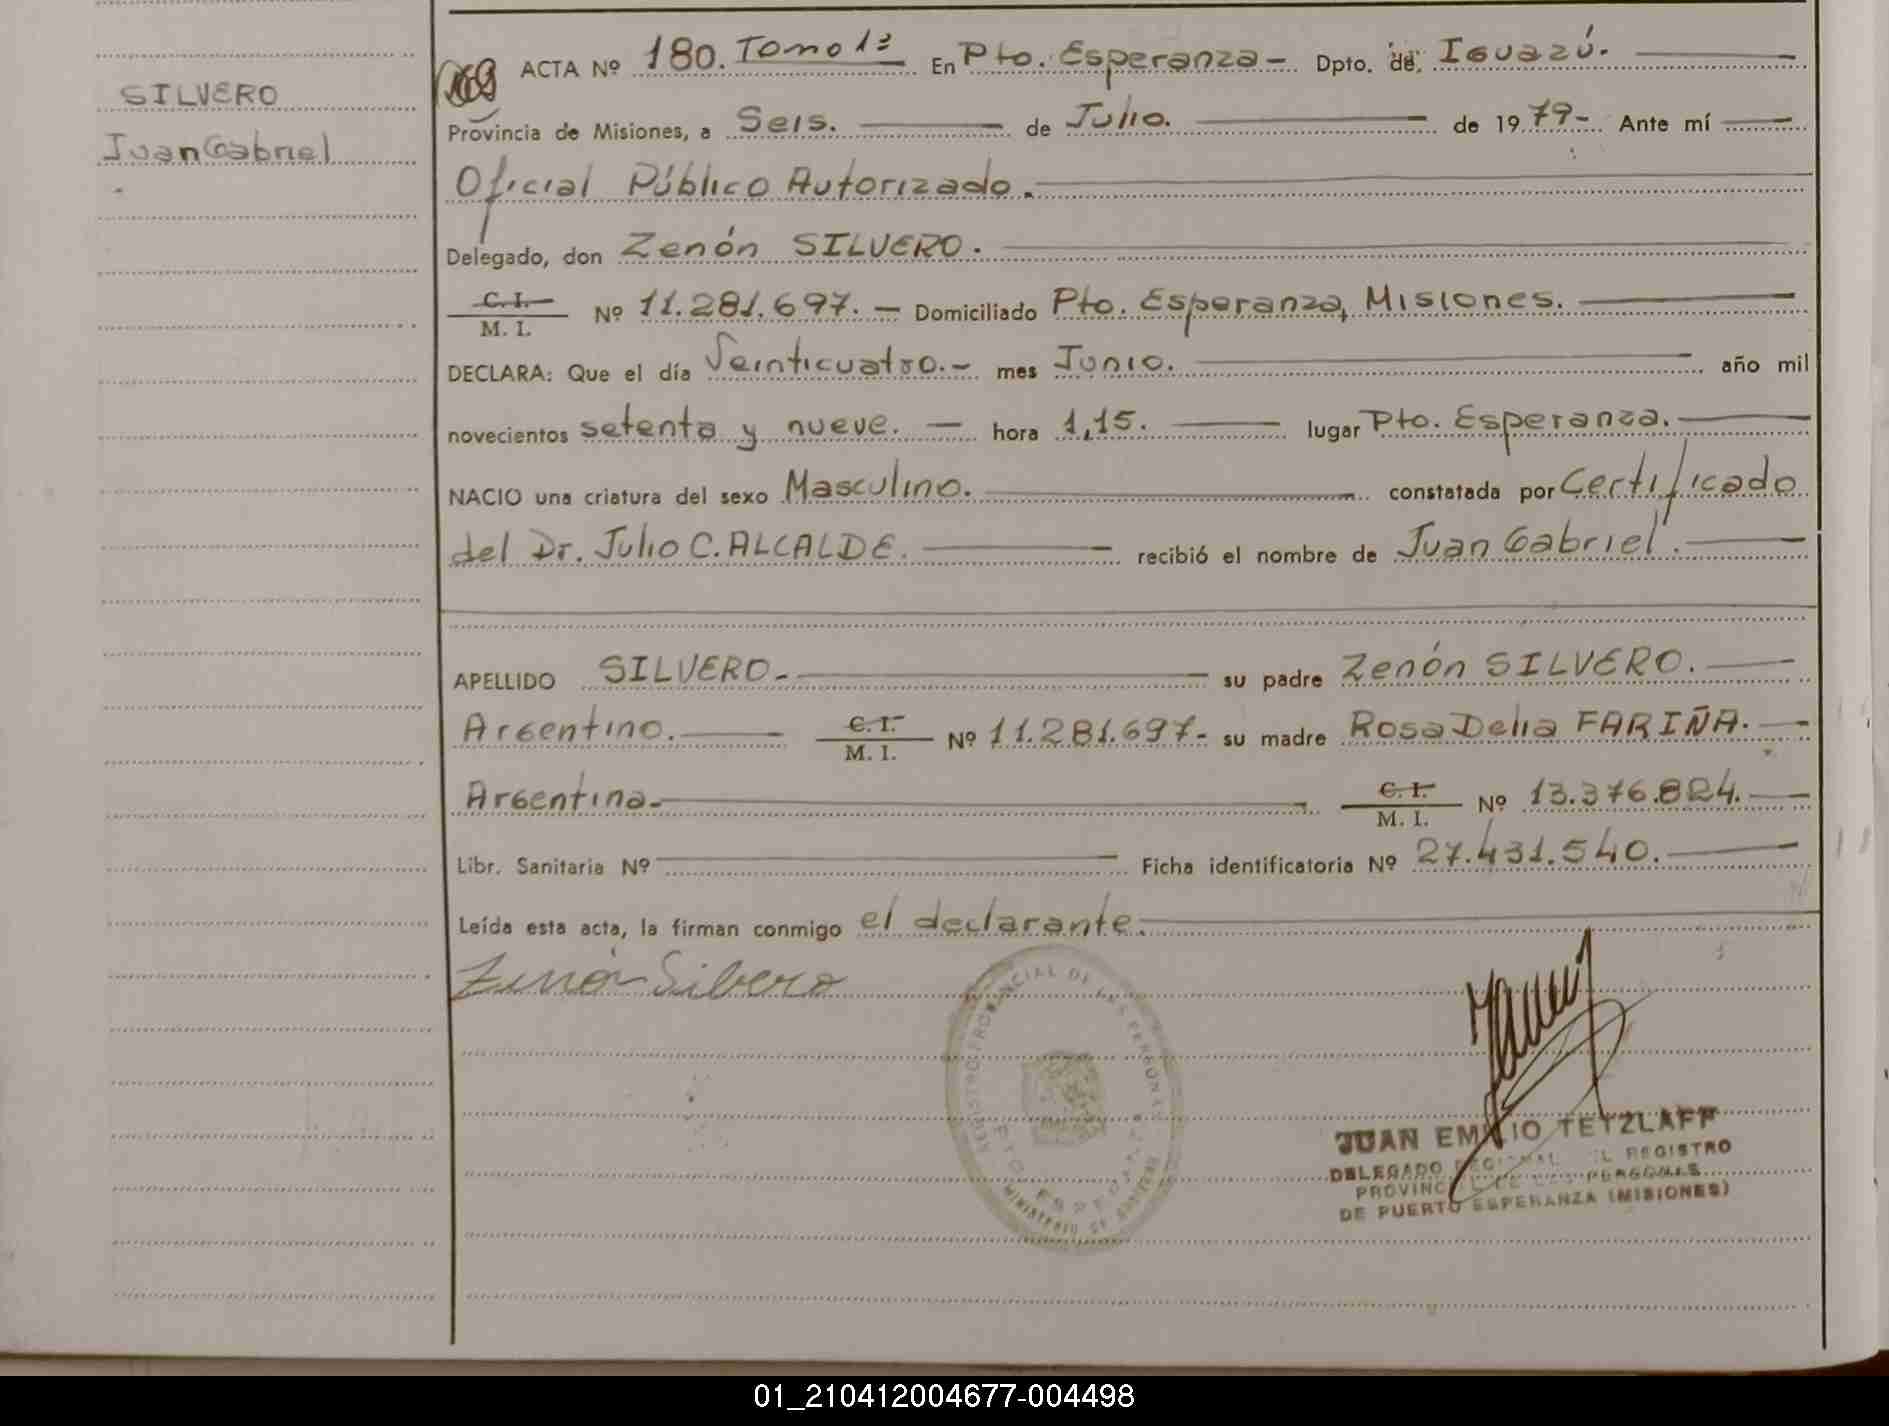 SILVERO
Juan Gabriel
ACTA Nº 180. Tomo 1º En Pto. Esperanza - Dpto. de Iguazú.
Provincia de Misiones, a Seis. de Julio. de 1979- Ante mí
Oficial Público Autorizado.
Delegado, don Zenón SILVERO.
C. I.
M. I. Nº 11.281.697. - Domiciliado Pto. Esperanza, Misiones.
DECLARA: Que el día Veinticuatro.- mes Junio. año mil
novecientos setenta y nueve. hora 1,15. lugar Pto. Esperanza.
NACIO una criatura del sexo Masculino. constatada por Certificado
del Dr. Julio C. ALCALDE. recibió el nombre de Juan Gabriel.
APELLIDO SILVERO.- su padre Zenón SILVERO.
Argentino. C. I.
M. I. Nº 11.281.697.- su madre Rosa Delia FARIÑA.
Argentina.- C. I.
M. I. Nº 13.376.824.
Libr. Sanitaria Nº Ficha identificatoria Nº 27.431.540.
Leída esta acta, la firman conmigo el declarante.
Zenón Silvero
REGISTRO PROVINCIAL DE LAS PERSONAS
PTO. ESPERANZA
MINISTERIO DE
JUAN EMILIO TETZLAFF
DELEGADO REGIONAL DEL REGISTRO
PROVINCIAL DE LAS PERSONAS
DE PUERTO ESPERANZA (MISIONES)
01_210412004677-004498